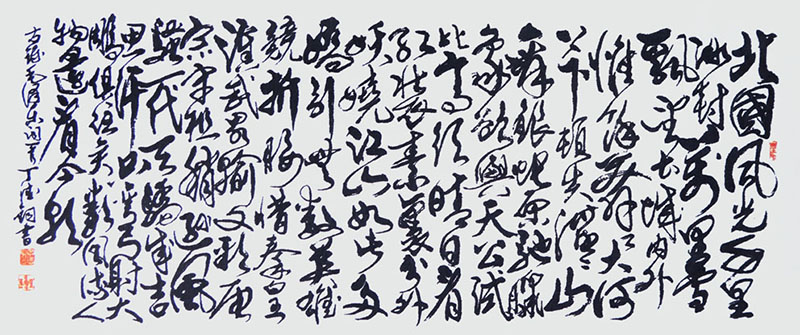 北國風光千里
冰封萬里雪
飄望長城內外
惟餘莽莽大河
上下頓失滔滔山
舞銀蛇原馳蠟
象欲與天公試
比高須晴日看
紅裝素裹分外
妖嬈江山如此多
嬌引無數英雄
競折腰惜秦皇
漢武略輸文彩唐
宗宋祖稍遜風
騷一代天驕成吉
思汗只識彎弓射大
雕俱往矣數風流人
物還看今朝
毛澤東詞 書